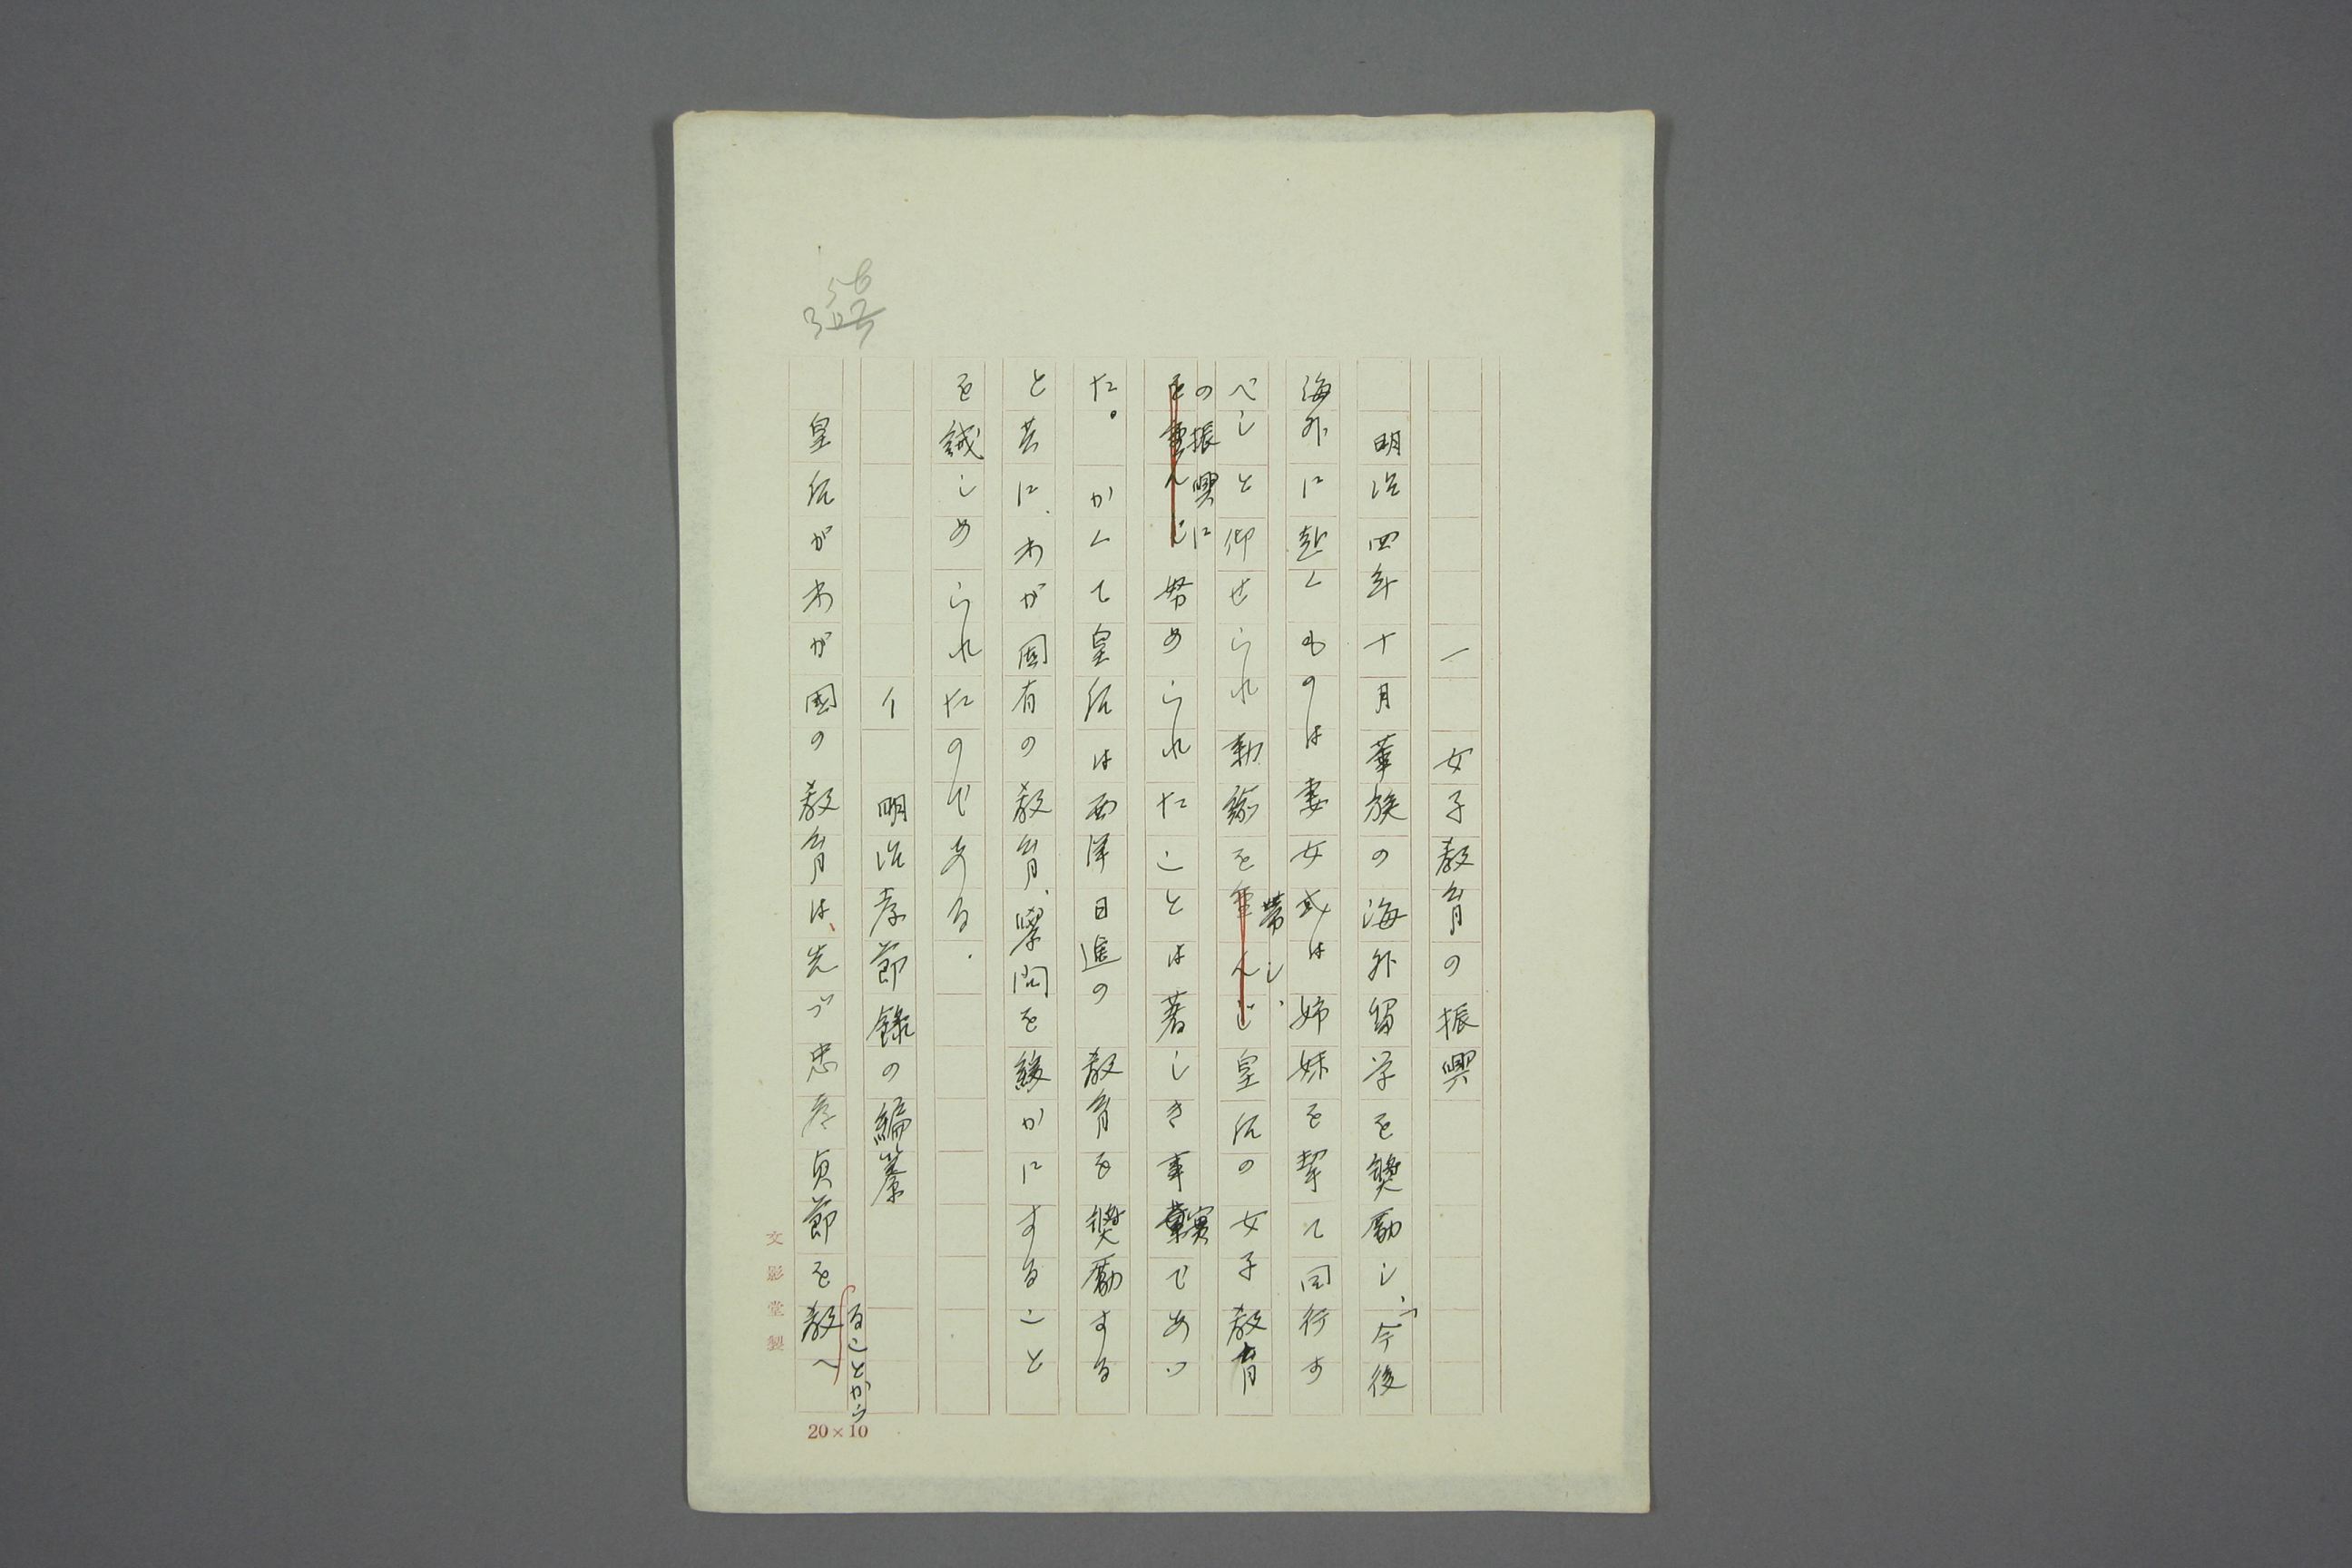 一 女子教育の振興
明治四年十月華族の海外留学を奬勵し、「今後
海外に赴くものは妻女或は姉妹を挈て同行す
べしと仰せられ勅諭を重んじ皇后の女子教育
帶し、
を重んじ努められたことは著しき事實であつ
の振興に
た。 かくて皇后は西洋日進の教育を奬勵する
と共に、わが固有の教育、學問を緩かにすること
を誡しめられたのである.
イ 明治孝節錄の編纂
皇后がわが國の教育は、先づ忠孝貞節を教へ
ることから
文影堂製
20×10